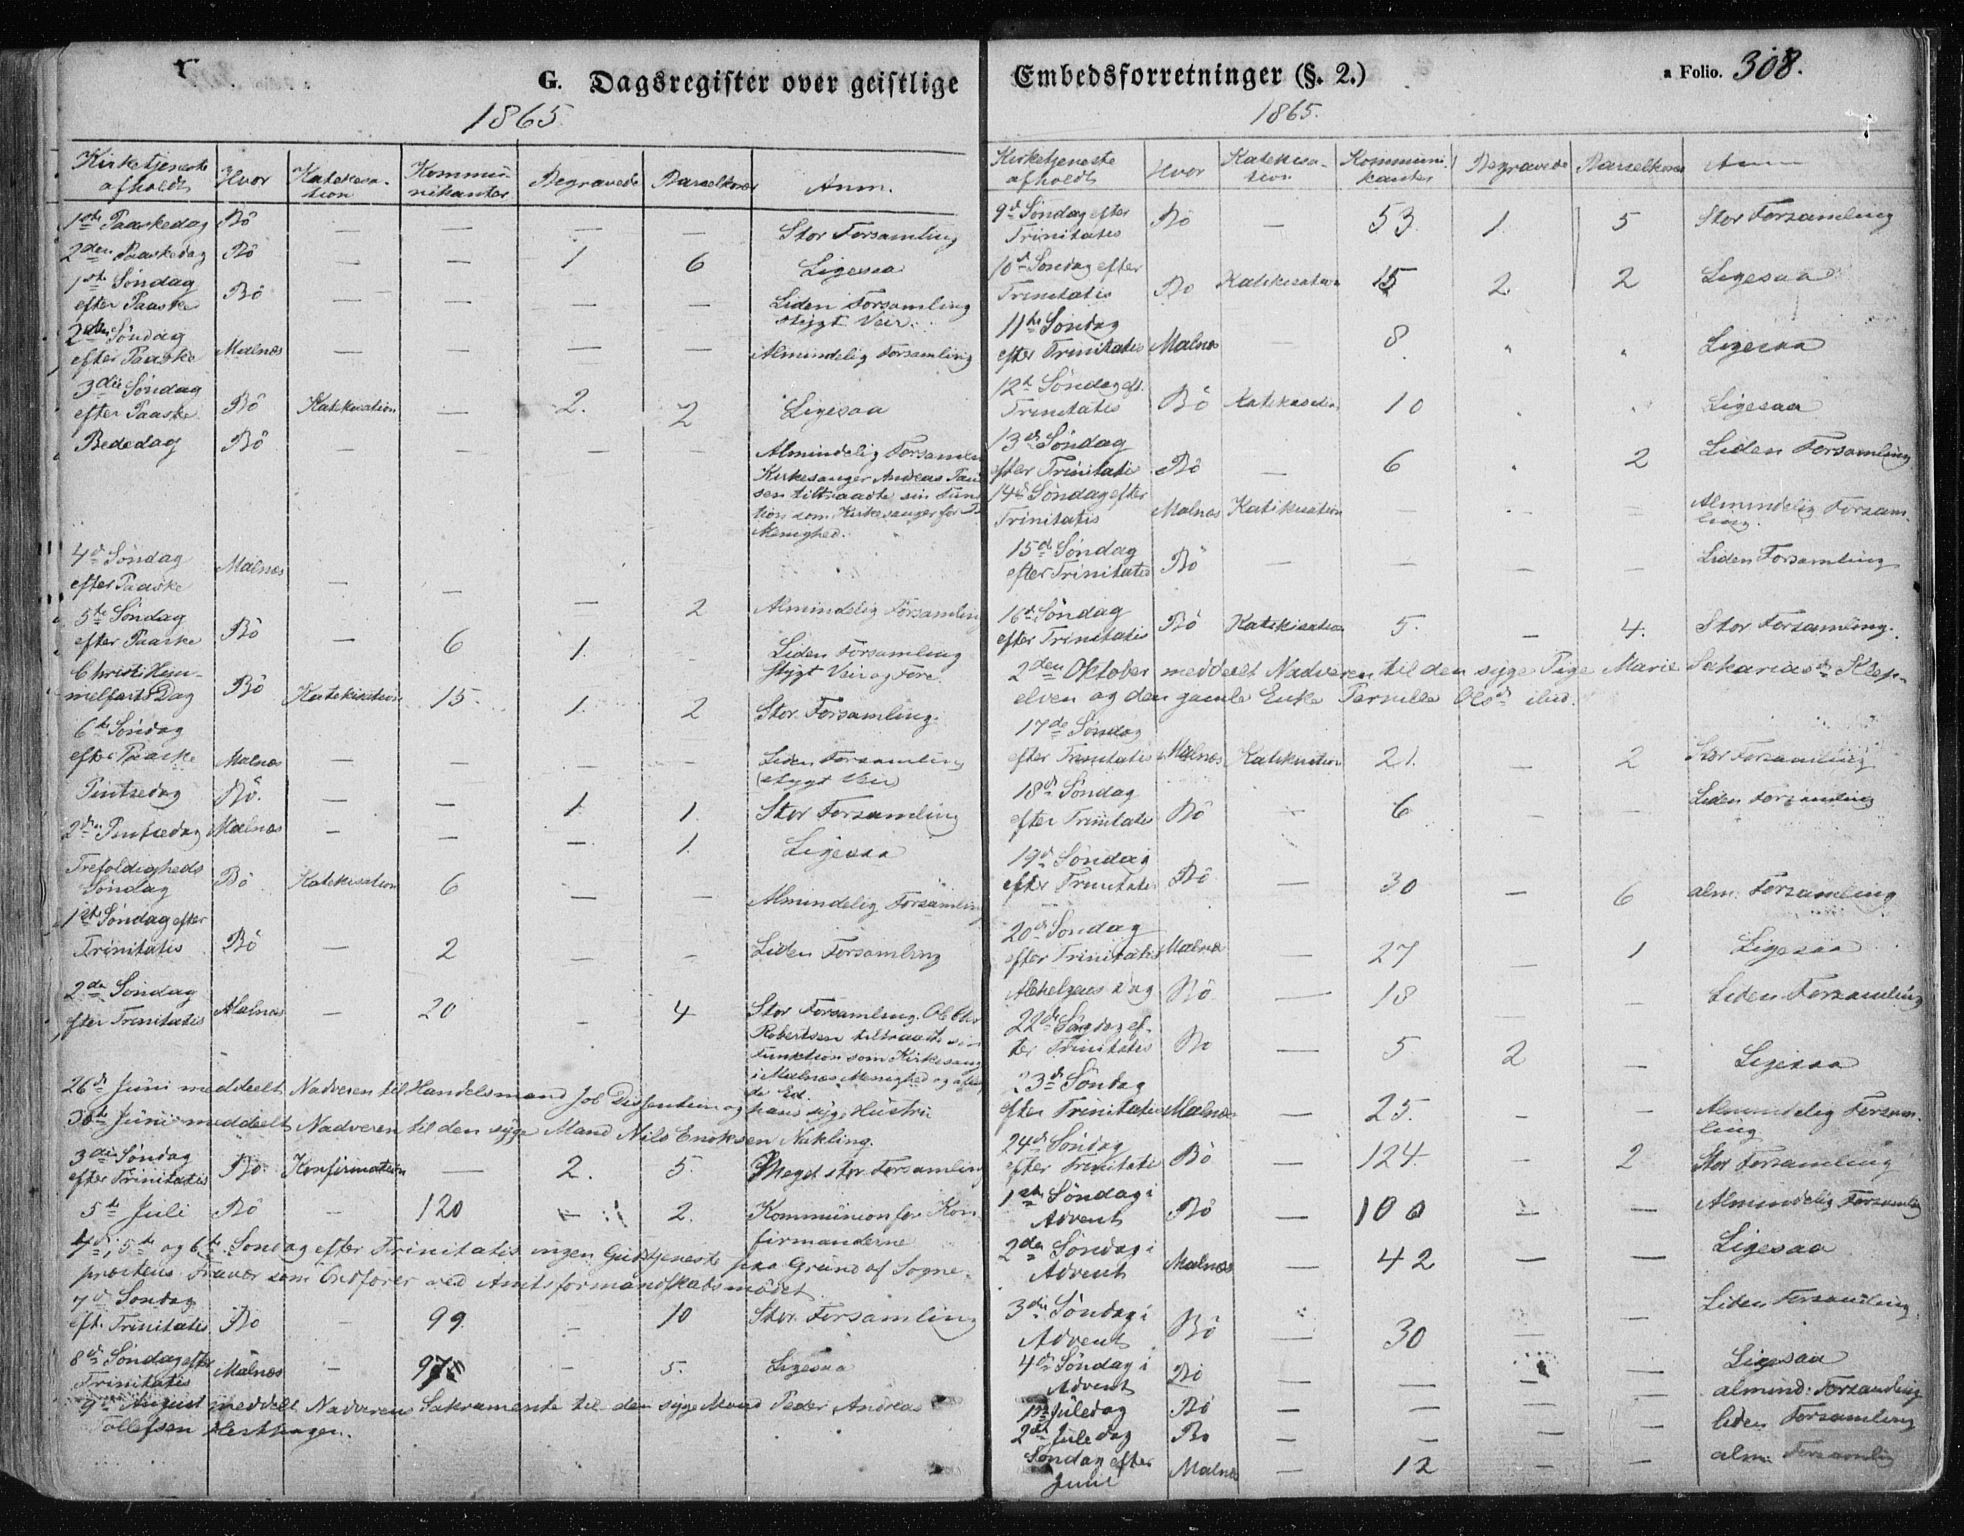 G. Dagsregister over geistlige
1865
Kirketjeneste afholdt | Hvor | Katekesation | Kommunikanter | Begravede | Barselkoner | Anm.
1ste Paaskedag | Bö | — | — | — | — | Stor Forsamling
2den Paaskedag | Bö | — | — | 1 | 6 | Ligesaa
1ste Søndag
efter Paaske | Bö | — | — | — | — | Liden Forsamling
stygt Veir.
2den Søndag
efter Paaske | Malnæs | — | — | — | — | Almindelig Forsamling
3die Søndag
efter Paaske | Bö | Katekisation | — | 2. | 2 | Ligesaa
Bededag | Bö | — | — | — | — | Almindelig Forsamlin
Kirkesanger Andreas
sen tiltraadte sin Funk
tion som Kirkesanger for
Menighed.
4de Søndag
efter Paaske | Malnæs | — | — | — | 2 | Almindelig Forsamling
5te Søndag
efter Paaske | Bö | — | 6 | 1. | — | Liden Forsamling
Stygt Veir og Føre
Christi Him-
melfarts Dag | Bö | Katekisation | 15. | 1. | 2 | Stor Forsamling.
6te Søndag
efter Paaske | Malnæs | — | — | — | — | Liden Forsamling
(stygt Veir)
Pintsedag | Bö. | — | — | 1. | 1. | Stor Forsamling
2den Pintsedag | Malnæs | — | — | — | 1. | Ligesaa
Trefoldigheds
Søndag | Bö | Katekisation | 6 | — | — | Almindelig Forsamling
1ste Søndag efter
Trinitatis | Bö | — | 2 | — | — | Liden Forsamling
2den Søndag
efter Trinitatis | Malnæs | — | 20 | — | 4 | Stor Forsamling.
Robertsen tiltraadte sin
Funktion som Kirkesang
i Malnæs Menighed og aflag
de Ed.
26de Juni meddeelt Nadveren til Handelsmand Job og hans syge Hustru
30te Juni meddeelt Nadveren til den syge Mand Nils Enoksen Nykling.
3die Søndag
efter Trinitatis | Bö | Konfirmation | — | 2. | 5. | Meget stor Forsamling
5te Juli | Bö | — | 120 | — | 2. | Kommunion for Kon-
firmanderne
4de, 5te og 6te Søndag efter Trinitatis ingen Gudstjeneste paa Grund af Sogne-
præstens Fravær som Ordfører ved Amtsformandskabsmødet.
7de Søndag
eft. Trinitatis | Bö | — | 99 | — | 10 | Stor Forsamling
8de Søndag efter
Trinitatis | Malnæs | — | 97 | — | 5. | Ligesaa
9de August meddelt Nadverens Sakramente til den syge Mand Peder Andreas
Tollefsen
Embedsforretninger (§. 2.)
a Folio. 308.
1865.
Kirketjeneste afholdt | Hvor | Katekisation | Kommunikanter | Begravede | Barselkoner | Anm
9de Søndag efter
Trinitatis | Bö | — | 53. | 1. | 5 | Stor Forsamling
10de Søndag efter
Trinitatis | Bö | Katekisation | 15 | 2. | 2 | Ligesaa
11te Søndag
efter Trinitatis | Malnæs | — | 8. | " | " | Ligesaa
12te Søndag eft.
Trinitatis | Bö | Katekisation | 10 | . | . | Ligesaa
13de Søndag
efter Trinitatis | Bö | — | 6 | . | 2 | Liden Forsamling
14de Søndag efter
Trinitatis | Malnæs | Katekisation | — | — | — | Almindelig Forsam-
ling.
15de Søndag
efter Trinitatis | Bö | — | — | — | — | Liden Forsamling
16de Søndag
efter Trinitatis | Bö | Katekisation | 5. | — | 4. | Stor Forsamling.
2den Oktober meddeelt Nadveren til den syge Pige Marie Sakariasdr Klep-
elven og den gamle Enke Pernille Olsdr ibid.
17de Søndag
efter Trinitatis | Malnæs | Katekisation | 21. | — | 2 | Stor Forsamling
18de Søndag
efter Trinitatis | Bö | — | 6 | — | — | Liden Forsamling
19de Søndag
efter Trinitatis | Bö | — | 30 | — | 6 | alm: Forsamling
20de Søndag
efter Trinitatis | Malnæs | | 27 | — | 1 | Ligesaa
Allehelgens Dag | Bö | — | 18 | — | — | Liden Forsamling
22de Søndag ef-
ter Trinitatis | Bö | — | 5. | 2 | — | Ligesaa
23de Søndag
efter Trinitatis | Malnæs | — | 25. | — | — | Almindelig Forsam-
ling
24de Søndag
efter Trinitatis | Bö | — | 124. | — | 2 | Stor Forsamling
1ste Søndag i
Advent | Bö | — | 100 | — | — | Almindelig Forsamling
2den Søndag i
Advent | Malnæs | — | 42 | — | — | Ligesaa
3die Søndag i
Advent | Bö | — | 30 | — | — | Liden Forsamling.
4de Søndag i
Advent | Bö | — | — | — | — | Ligesaa
1ste Juledag | Bö | — | — | — | — | almind: Forsamling
2den Juledag | Bö | — | — | — | — | liden Forsamling
Søndag efter
Juul | Malnæs | — | 12 | — | — | alm: Forsamling